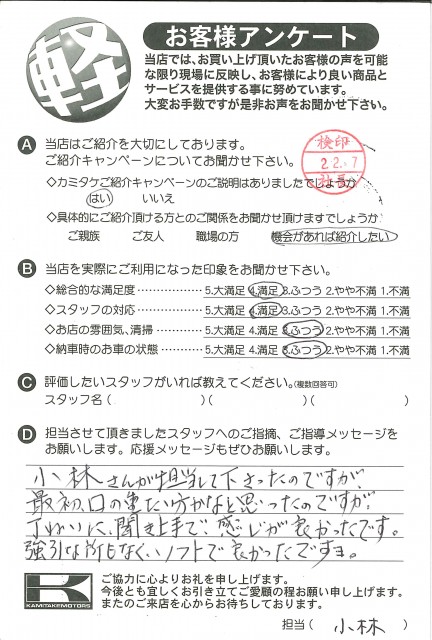 軽
お客様アンケート
当店では、お買い上げ頂いたお客様の声を可能
な限り現場に反映し、お客様により良い商品と
サービスを提供する事に努めています。
大変お手数ですが是非お声をお聞かせ下さい。
A 当店はご紹介を大切にしております。
ご紹介キャンペーンについてお聞かせ下さい。
検印
2.2.-7
社長
◇カミタケご紹介キャンペーンのご説明はありましたでしょうか
はい いいえ
◇具体的にご紹介頂ける方とのご関係をお聞かせ頂けますでしょうか
ご親族 ご友人 職場の方 機会があれば紹介したい
B 当店を実際にご利用になった印象をお聞かせ下さい。
◇総合的な満足度 ……………… 5.大満足 4.満足 3.ふつう 2.やや不満 1.不満
◇スタッフの対応 ……………… 5.大満足 4.満足 3.ふつう 2.やや不満 1.不満
◇お店の雰囲気、清掃 ………… 5.大満足 4.満足 3.ふつう 2.やや不満 1.不満
◇納車時のお車の状態 ………… 5.大満足 4.満足 3.ふつう 2.やや不満 1.不満
C 評価したいスタッフがいれば教えてください。(複数回答可)
スタッフ名( )( )( )
D 担当させて頂きましたスタッフへのご指摘、ご指導メッセージを
お願いします。応援メッセージもぜひお願いします。
小林さんが担当して下さったのですが、
最初、口の重たい方かなと思ったのですが、
丁ねいに、聞き上手で、感じが良かったです。
強引な所もなく、ソフトで良かったですヨ。
K
KAMITAKEMOTORS
ご協力に心よりお礼を申し上げます。
今後とも宜しくお引き立てご愛顧の程お願い申し上げます。
またのご来店を心からお待ちしております。
担当( 小林 )